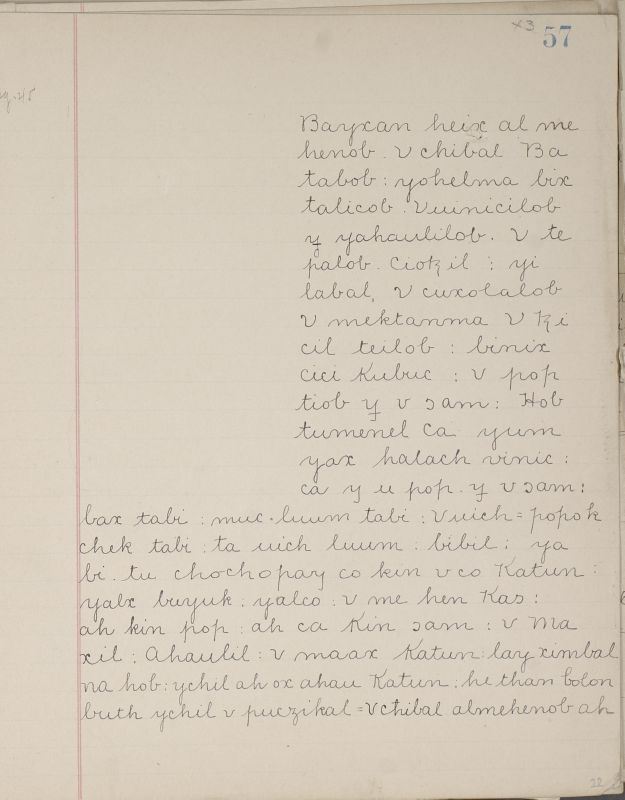 x3 57
Bayxan heix al me
henob. V chibal Ba
tabob : yohelma bix
talicob. Vuinicilob
y yahaulilob. V te
palob. Ciotz il : yi
labal, V cuxolalob
V mektanma V tzi
cil teilob : binix
cici Kubuc : V pop
tiob y v ɔam : Hob
tumenel Ca yum
yax halach vinic :
ca y u pop. y v ɔam :
bax tabi : muc. luum tabi : V uich = popok
chek tabi : ta uich luum : bibil : ya
bi. tu chochopay co kin v co Katun :
yalx buyuk : yalco : v me hen Kas :
ah kin pop : ah ca Kin ɔam : v Ma
xil : Ahaulil : v maax Katun : lay ximbal
na hob : ychil ah ox ahau Katun : he than bolon
buth ychil v puczikal = V chibal almehenob ah
22